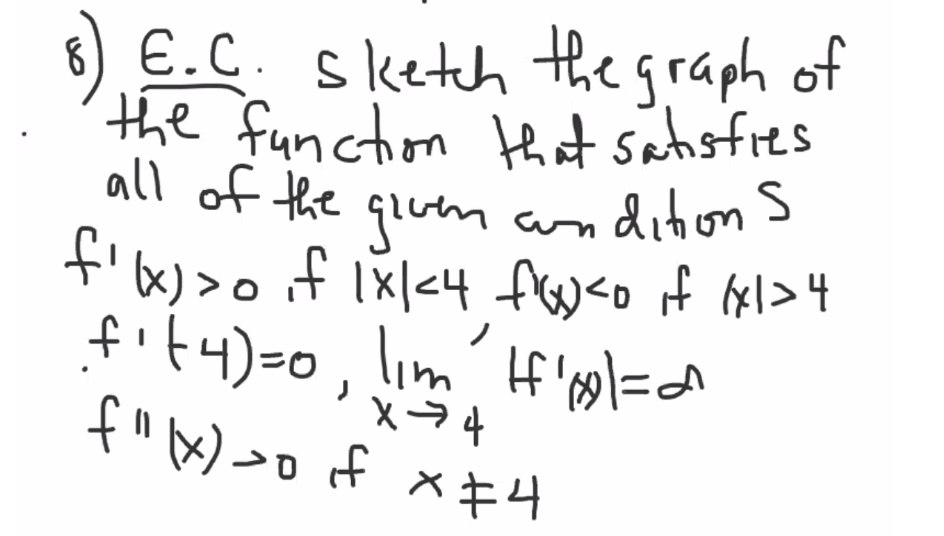 8) E.C. sketch the graph of
the function that satisfies
all of the given conditions
f'(x)>0 if |x|<4 f'(x)<0 if |x|>4
f'(-4)=0, lim x→4 |f'(x)|=∞
f''(x)>0 if x≠4